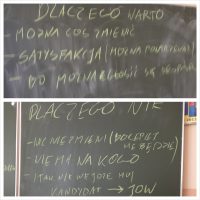 DLACZEGO WARTO
- MOŻNA COŚ ZMIENIĆ
- SATYSFAKCJA (MOŻNA
- BO MOŻNA SIĘ
DLACZEGO NIE
- NIC NIE ZMIENI (
NIE MA NA KOGO
- I TAK NIE WEJDZIE MÓJ
KANDYDAT → JOW